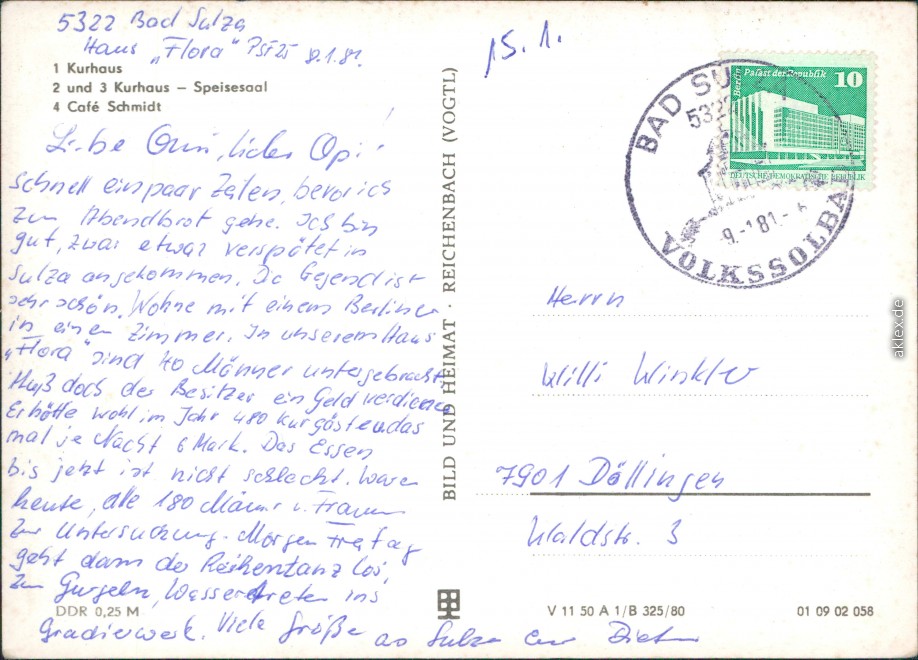 5322 Bad Sulza
Haus „Flora“ PSF 25 8.1.81.
1 Kurhaus
2 und 3 Kurhaus – Speisesaal
4 Café Schmidt
Liebe Omi, lieber Opi!
Schnell ein paar Zeilen, bevor ich
zum Abendbrot gehe. Ich bin
gut, zwar etwas verspätet in
Sulza angekommen. Die Gegend ist
sehr schön. Wohne mit einem Berliner
in einem Zimmer. In unserem Haus
„Flora“ sind 40 Männer untergebracht.
Muß doch der Besitzer ein Geld verdienen.
Er hätte wohl im Jahr 480 Kurgäste und das
mal je Nacht 6 Mark. Das Essen
bis jetzt ist nicht schlecht. Waren
heute, alle 180 Männer u. Frauen
zur Untersuchung. Morgen Freitag
geht dann der Reihentanz los,
zum Gurgeln, Wassertreten ins
Gradierwerk. Viele Grüße aus Sulza Euer
BILD UND HEIMAT · REICHENBACH (VOGTL)
15.1.
Berlin Palast der Republik 10
DEUTSCHE DEMOKRATISCHE REPUBLIK
BAD SU
5322
-9.-1.81.-
VOLKSSOLBAD
Herrn
Willi Winkler
7901 Döllingen
Waldstr. 3
DDR 0,25 M
V 11 50 A 1/B 325/80
01 09 02 058
aklex.de